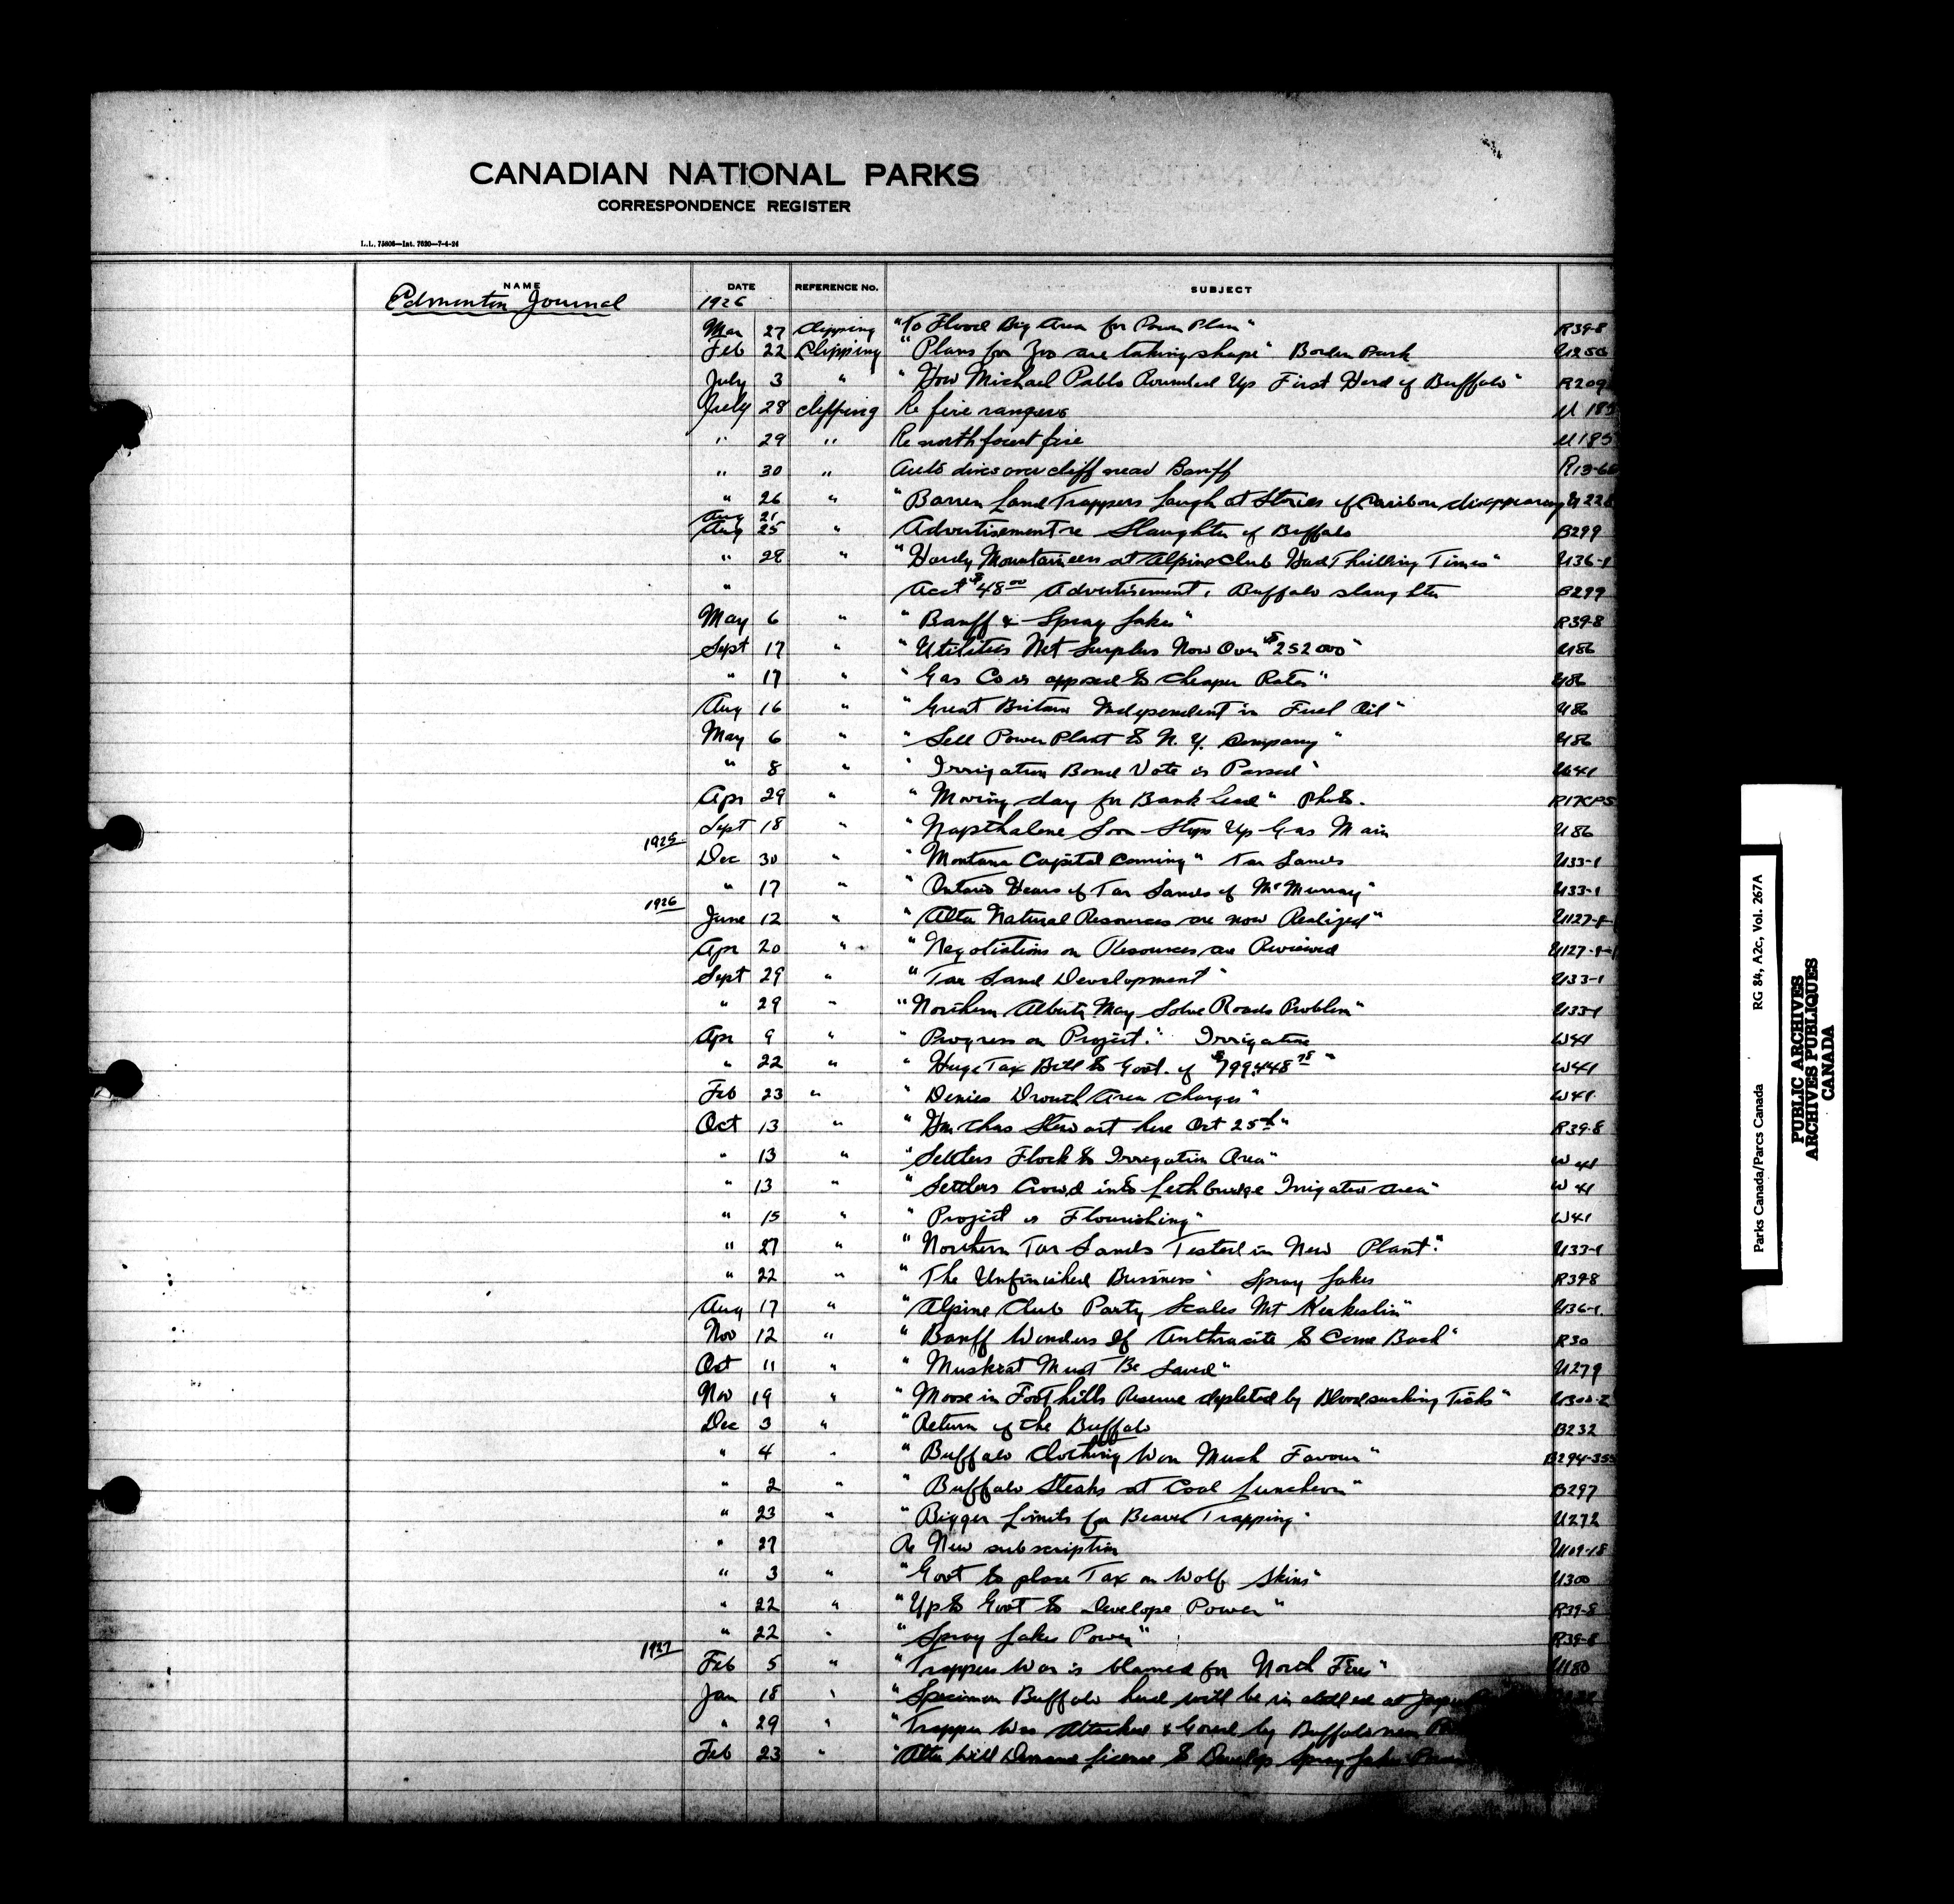 CANADIAN NATIONAL PARKS
CORRESPONDENCE REGISTER
L.L. 75806—Int. 7620—7-4-24
NAME DATE REFERENCE No. SUBJECT
Edmonton Journal 1926
Mar 27 Clipping "To Flood Big Area for Power Plan" R39-8
Feb 22 Clipping "Plans for Zoo are taking shape" Borden Park U250
July 3 " "How Michael Pablo Rounded Up First Herd of Buffalo" R209
July 28 clipping Re fire rangers U185
" 29 " Re north forest fire U185
" 30 " Auto dives over cliff near Banff R13-66
" 26 " "Barren Land Trappers Laugh at Stories of Caribou disappearing U228
Aug 21
Aug 25 " Advertisement re Slaughter of Buffalo B299
" 28 " "Hardy Mountaineers at Alpine Club Had Thrilling Times" U36-1
" Acct $48.00 Advertisement, Buffalo slaughter B299
May 6 " "Banff & Spray Lakes" R39-8
Sept 17 " "Utilities Net Surplus Now Over $252000" U86
" 17 " "Gas Co is opposed to Cheaper Rates" U86
Aug 16 " "Great Britain Independent in Fuel Oil" U86
May 6 " "Sell Power Plant to N. Y. Company" U86
" 8 " "Irrigation Bond Vote is Passed" W41
Apr 29 " "Moving day for Bankhead" Photo. R17KP5
Sept 18 " "Napthalene Soon Stops Up Gas Main U86
1925
Dec 30 " "Montana Capital Coming" Tar Sands U33-1
" 17 " "Ontario Hears of Tar Sands of McMurray" U33-1
1926
June 12 " "Alta Natural Resources are now Realized" U127-8-1
Apr 20 " "Negotiations on Resources are Reviewed U127-8-1
Sept 29 " "Tar Sand Development" U33-1
" 29 " "Northern Alberta May Solve Roads Problem" U33-1
Apr 9 " "Progress on Project." Irrigation W41
" 22 " "Huge Tax Bill to Govt. of $799,448.75" W41
Feb 23 " "Denies Drouth Area Charges" W41
Oct 13 " "Hon Chas Stewart here Oct 25th" R39-8
" 13 " "Settlers Flock to Irrigation Area" W41
" 13 " "Settlers Crowd into Lethbridge Irrigated Area" W41
" 15 " "Project is Flourishing" W41
" 27 " "Northern Tar Sands Tested in New Plant." U33-1
" 22 " "The Unfinished Business" Spray Lakes R39-8
Aug 17 " "Alpine Club Party Scales Mt Kerkeslin" U36-1.
Nov 12 " "Banff Wonders If Anthracite to Come Back" R30
Oct 11 " "Muskrat Must Be Saved" U279
Nov 19 " "Moose in Foothills Reserve depleted by Bloodsucking Ticks" U300-2
Dec 3 " "Return of the Buffalo B232
" 4 " "Buffalo Clothing Won Much Favour" B294-355
" 2 " "Buffalo Steaks at Coal Luncheon" B297
" 23 " "Bigger Limits for Beaver Trapping" U272
" 27 Re New subscription U109-18
" 3 " "Govt to place Tax on Wolf Skins" U300
" 22 " "Up to Govt to Develope Power" R39-8
" 22 " "Spray Lakes Power" R39-8
1927
Feb 5 " "Trappers War is blamed for North Fires" U180
Jan 18 " "Specimen Buffalo herd will be installed at
" 29 " "Trapper Was Attacked & Gored by Buffalo near
Feb 23 " "Alta Will Demand License to Develop Spray Lakes Power
Parks Canada/Parcs Canada RG 84, A2c, Vol. 267A
PUBLIC ARCHIVES
ARCHIVES PUBLIQUES
CANADA